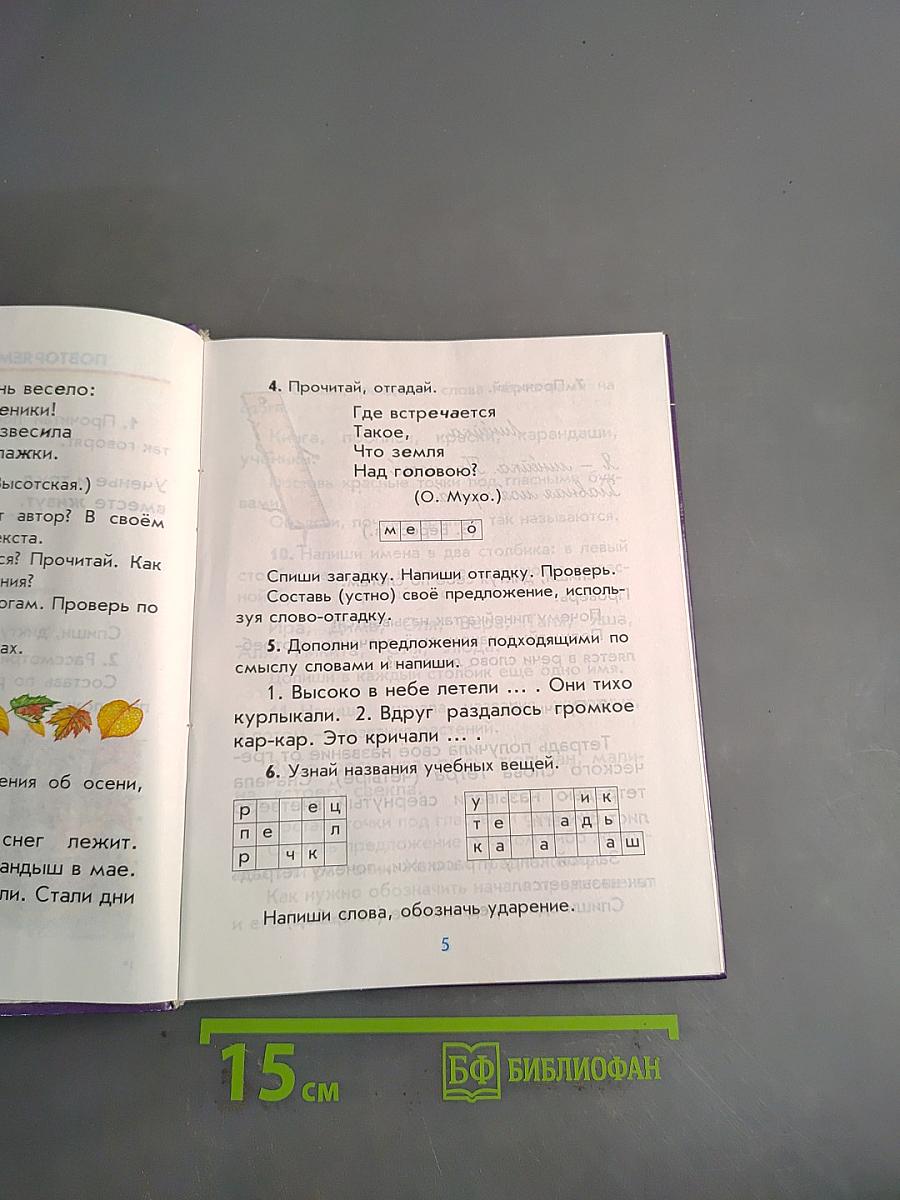 ПОВТОРЯЕМ
нь весело:
еники!
звесила
лажки.
Высотская.)
т автор? В своём
екста.
ся? Прочитай. Как
ния?
огам. Проверь по
ах.
ения об осени,
снег лежит.
андыш в мае.
ли. Стали дни
4. Прочитай, отгадай.
Где встречается
Такое,
Что земля
Над головою?
(О. Мухо.)
м е о́
Спиши загадку. Напиши отгадку. Проверь.
Составь (устно) своё предложение, исполь-
зуя слово-отгадку.
5. Дополни предложения подходящими по
смыслу словами и напиши.
1. Высоко в небе летели ... . Они тихо
курлыкали. 2. Вдруг раздалось громкое
кар-кар. Это кричали ... .
6. Узнай названия учебных вещей.
р е ц
п е л
р ч к
у и к
т е а д ь
к а а а ш
Напиши слова, обозначь ударение.
5
15 см
БФ БИБЛИОФАН